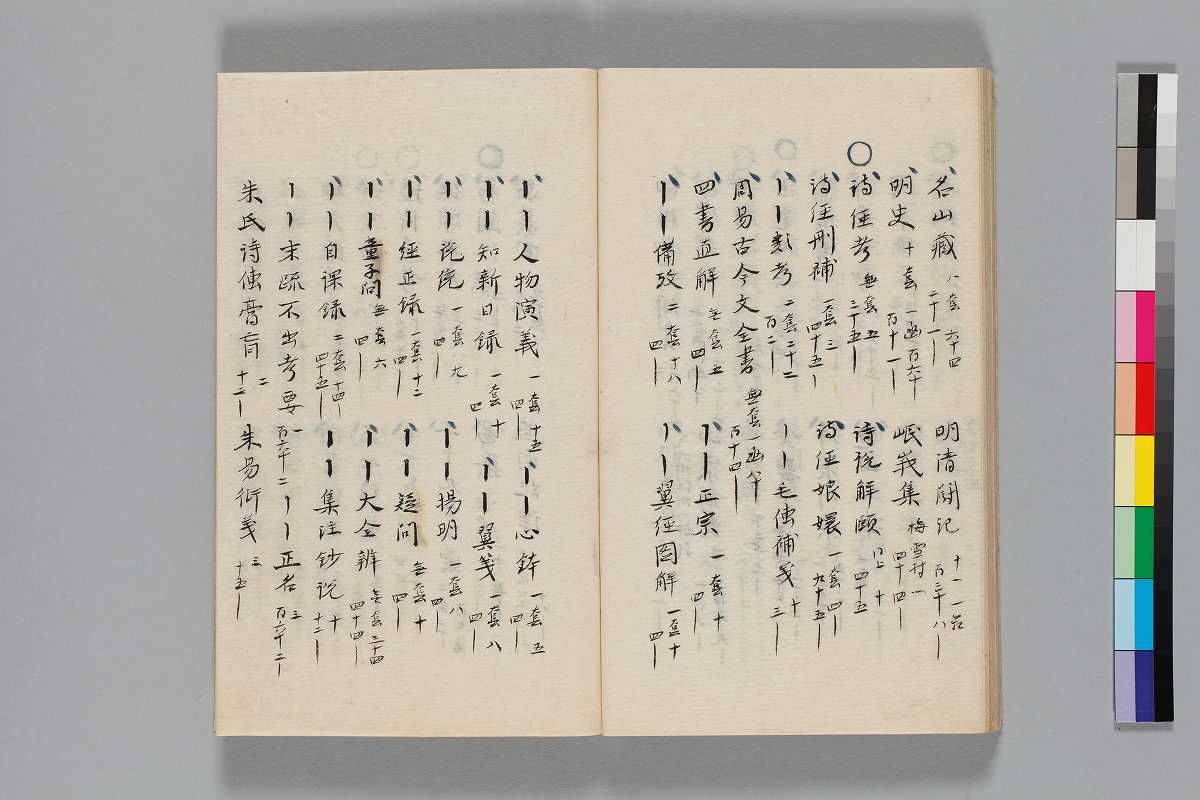 名山藏 八套 六十四 二十一｜ 明清闘記 十一 一名 百三十八｜
明史 十套 一函 百六十 百十一｜ 岷峩集 梅雪村 四十四｜
詩經考 無套 五 三十五｜ 詩説解頤 同上 十 四十五
詩經刪補 一套 三 四十五｜ 詩經娘嬛 一套 四 九十五｜
｜｜類考 二套 二十二 百二｜ ｜｜毛傳補義 十 三｜
周易古今文全書 無套 一函 百十四｜
四書直解 無套 五 四｜ ｜｜正宗 一套 十 四｜
｜｜備攷 二套 十八 四｜ ｜｜翼經圖解 一套 十 四｜
｜｜人物演義 一套 十五 四｜ ｜｜心鉢 一套 五 四｜
｜｜知新日録 一套 十 四｜ ｜｜翼箋 一套 八 四｜
｜｜説統 一套 九 四｜ ｜｜揚明 一套 八 四｜
｜｜經正録 一套 十二 四｜ ｜｜疑問 無套 十 四｜
｜｜童子問 無套 六 四｜ ｜｜大全辨 無套 三十四 四十四｜
｜｜自課録 二套 十四 四十五｜ ｜｜集註鈔説 十 十二｜
｜｜末疏不出考要 一 百六十二｜ ｜｜正名 三 百六十二｜
朱氏詩傳膏肓 二 十二｜ 朱易衍義 三 十五｜